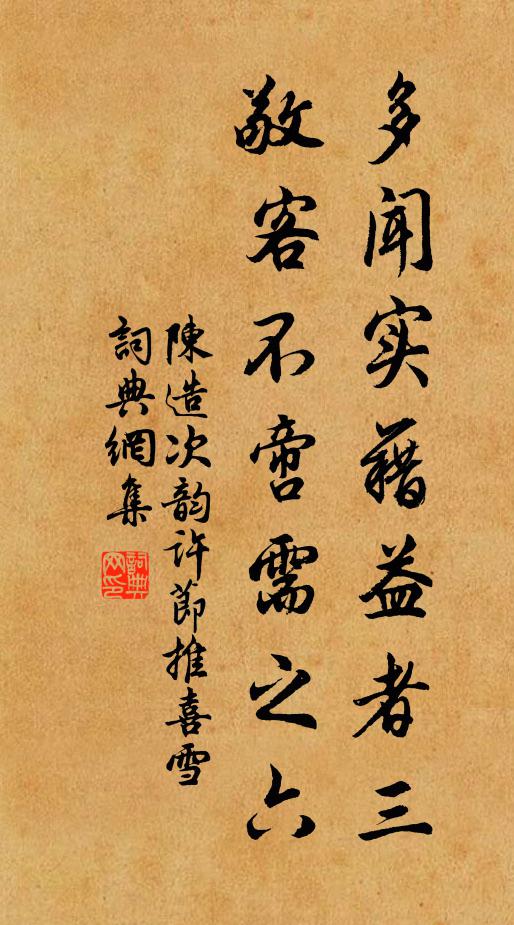 多闻实藉益者三
敬客不啻需之六
陳造次韵许節推喜雪
詞典網集
詞典
网印